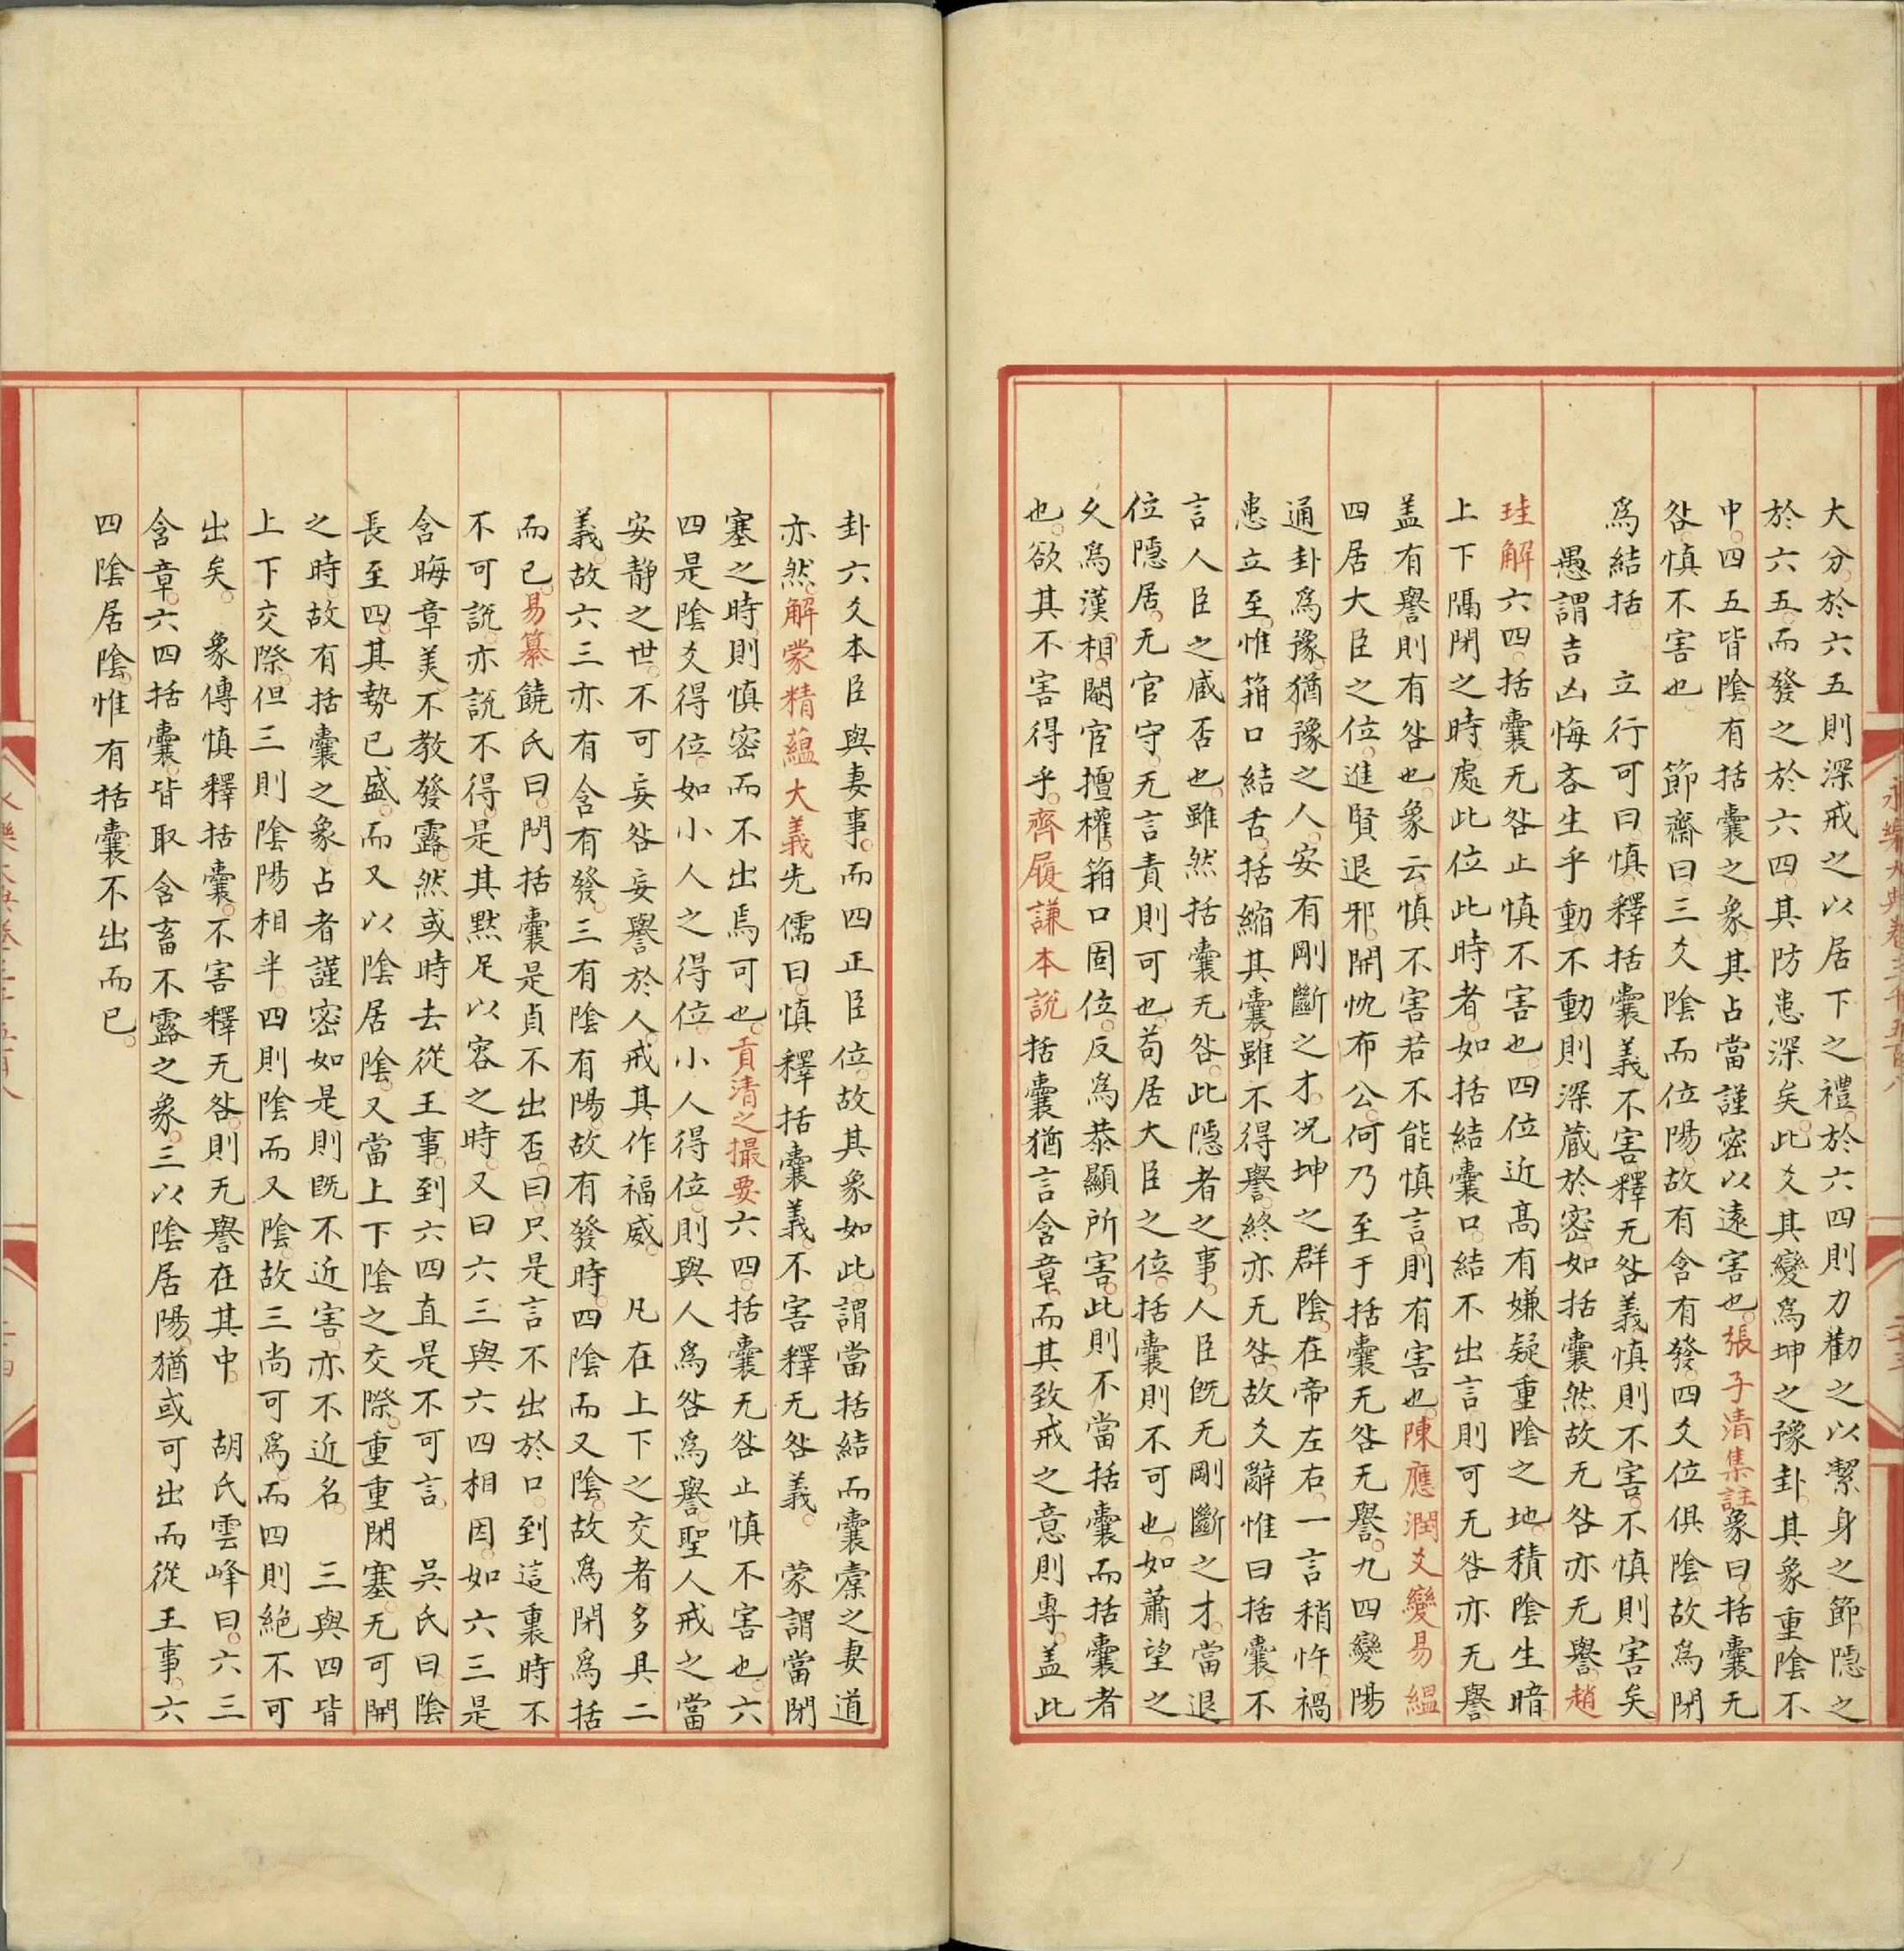 大分。於六五則深戒之以居下之禮。於六四則力勸之以潔身之節。隱之
於六五。而發之於六四。其防患深矣。此爻其變爲坤之豫卦。其象重陰不
中。四五皆陰。有括囊之象。其占當謹密以遠害也。張子清集註象曰。括囊无
咎。慎不害也。 節齋曰。三爻陰而位陽。故有含有發。四爻位俱陰。故爲閉
爲結括。 立行可曰。慎。釋括囊義。不害。釋无咎義。慎則不害。不慎則害矣
愚謂吉凶悔吝生乎動。不動則深蔵於密。如括囊然。故无咎亦无譽。趙
珪解六四。括囊无咎。止慎不害也。四位近髙。有嫌疑。重陰之地。積陰生暗。
上下隔閉之時。處此位此時者。如括結囊口。結不出言。則可无咎亦无譽。
盖有譽則有咎也。象云。慎不害。若不能慎言。則有害也。陳應潤爻變易縕
四居大臣之位。進賢退邪。開忱布公。何乃至于括囊无咎无譽。九四變陽
通卦爲豫。猶豫之人。安有剛斷之才。况坤之群陰。在帝左右。一言稍忤。禍
患立至。惟箝口結舌。括縮其囊。雖不得譽。終亦无咎。故爻辭惟曰括囊。不
言人臣之臧否也。雖然括囊无咎。此隱者之事。人臣旣无剛斷之才。當退
位隱居。无官守。无言責則可也。苟居大臣之位。括囊則不可也。如蕭望之
乆爲漢相。閹宦擅權。箝口固位。反爲恭顯所害。此則不當括囊而括囊者
也。欲其不害得乎。齊履謙本説括囊猶言含章。而其致戒之意則專。盖此
卦六爻本臣與妻事。而四正臣位。故其象如此。謂當括結而囊橐之妻道
亦然。解蒙精蘊大義先儒曰。慎釋括囊義。不害釋无咎義。 蒙謂當閉
塞之時。則慎密而不出焉可也。貢清之撮要六四。括囊无咎。止慎不害也。六
四是陰爻得位。如小人之得位。小人得位。則與人爲咎爲譽。聖人戒之當
安靜之世。不可妄咎妄譽於人。戒其作福威。 凡在上下之交者。多具二
義。故六三亦有含有發。三有陰有陽。故有發時。四陰而又陰。故爲閉爲括
而已。易纂饒氏曰。問括囊是貞不出否。曰。只是言不出於口。到這裏時不
不可説。亦説不得。是其黙足以容之時。又曰六三與六四相因。如六三是
含晦章美。不教發露。然或時去從王事。到六四直是不可言。 吳氏曰。陰
長至四。其勢已盛。而又以陰居陰。又當上下陰之交際。重重閉塞。无可開
之時。故有括囊之象。占者謹密如是。則既不近害。亦不近名。 三與四皆
上下交際。但三則陰陽相半。四則陰而又陰。故三尚可爲。而四則絶不可
出矣。 象傳慎釋括囊。不害釋无咎。則无譽在其中。 胡氏雲峰曰。六三
含章。六四括囊。皆取含畜不露之象。三以陰居陽。猶或可出而從王事。六
四陰居陰。惟有括囊不出而已。